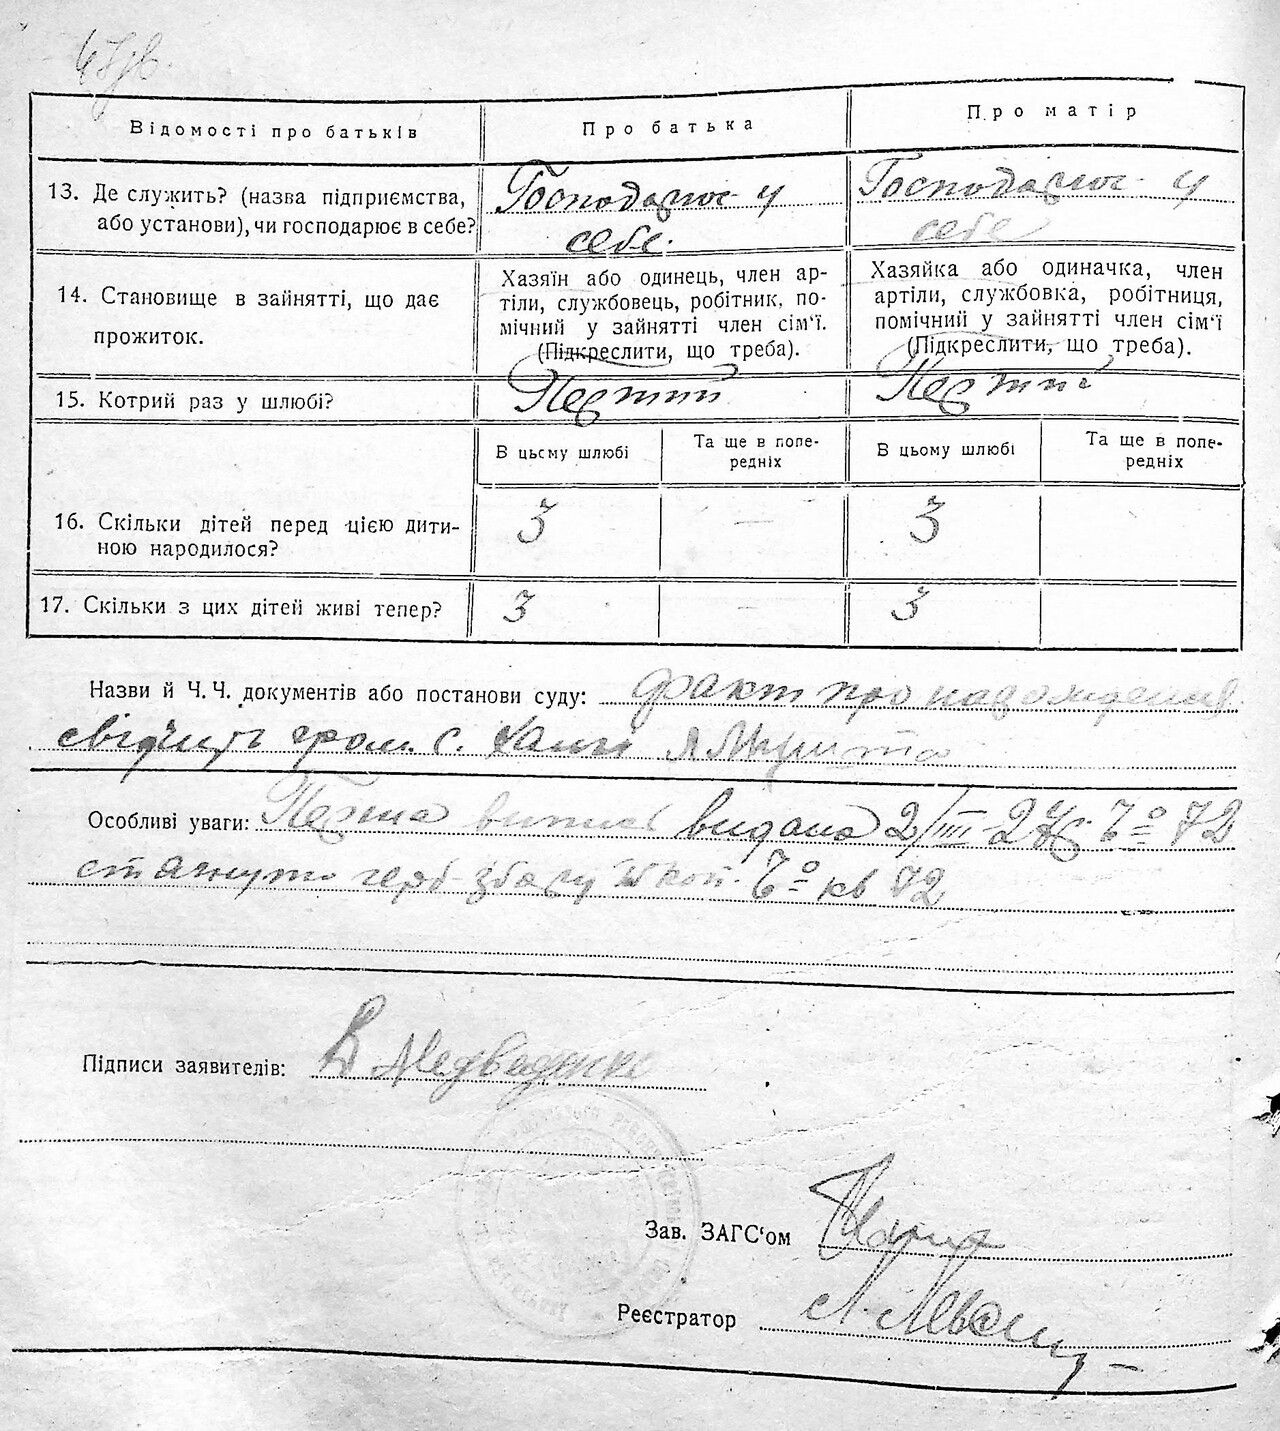 Відомості про батьків
Про батька
Про матір
13. Де служить? (назва підприємства,
або установи), чи господарює в себе?
Господарює у
себе.
Господарює у
себе
14. Становище в зайнятті, що дає
прожиток.
Хазяїн або одинець, член ар-
тіли, службовець, робітник, по-
мічний у зайнятті член сім'ї.
(Підкреслити, що треба).
Хазяйка або одиначка, член
артіли, службовка, робітниця,
помічний у зайнятті член сім'ї
(Підкреслити, що треба).
15. Котрий раз у шлюбі?
Перший
Перший
В цьому шлюбі
Та ще в попе-
редніх
В цьому шлюбі
Та ще в попе-
редніх
16. Скільки дітей перед цією дити-
ною народилося?
3
—
3
17. Скільки з цих дітей живі тепер?
3
—
3
Назви й Ч. Ч. документів або постанови суду: факт про народження
свідчить гром. с.
Особливі уваги: Перша випис видана 2/III-27р. Ч° 72
стягнуто герб збору коп. Ч° кв 72
Підписи заявителів:
Зав. ЗАГС'ом
Реєстратор